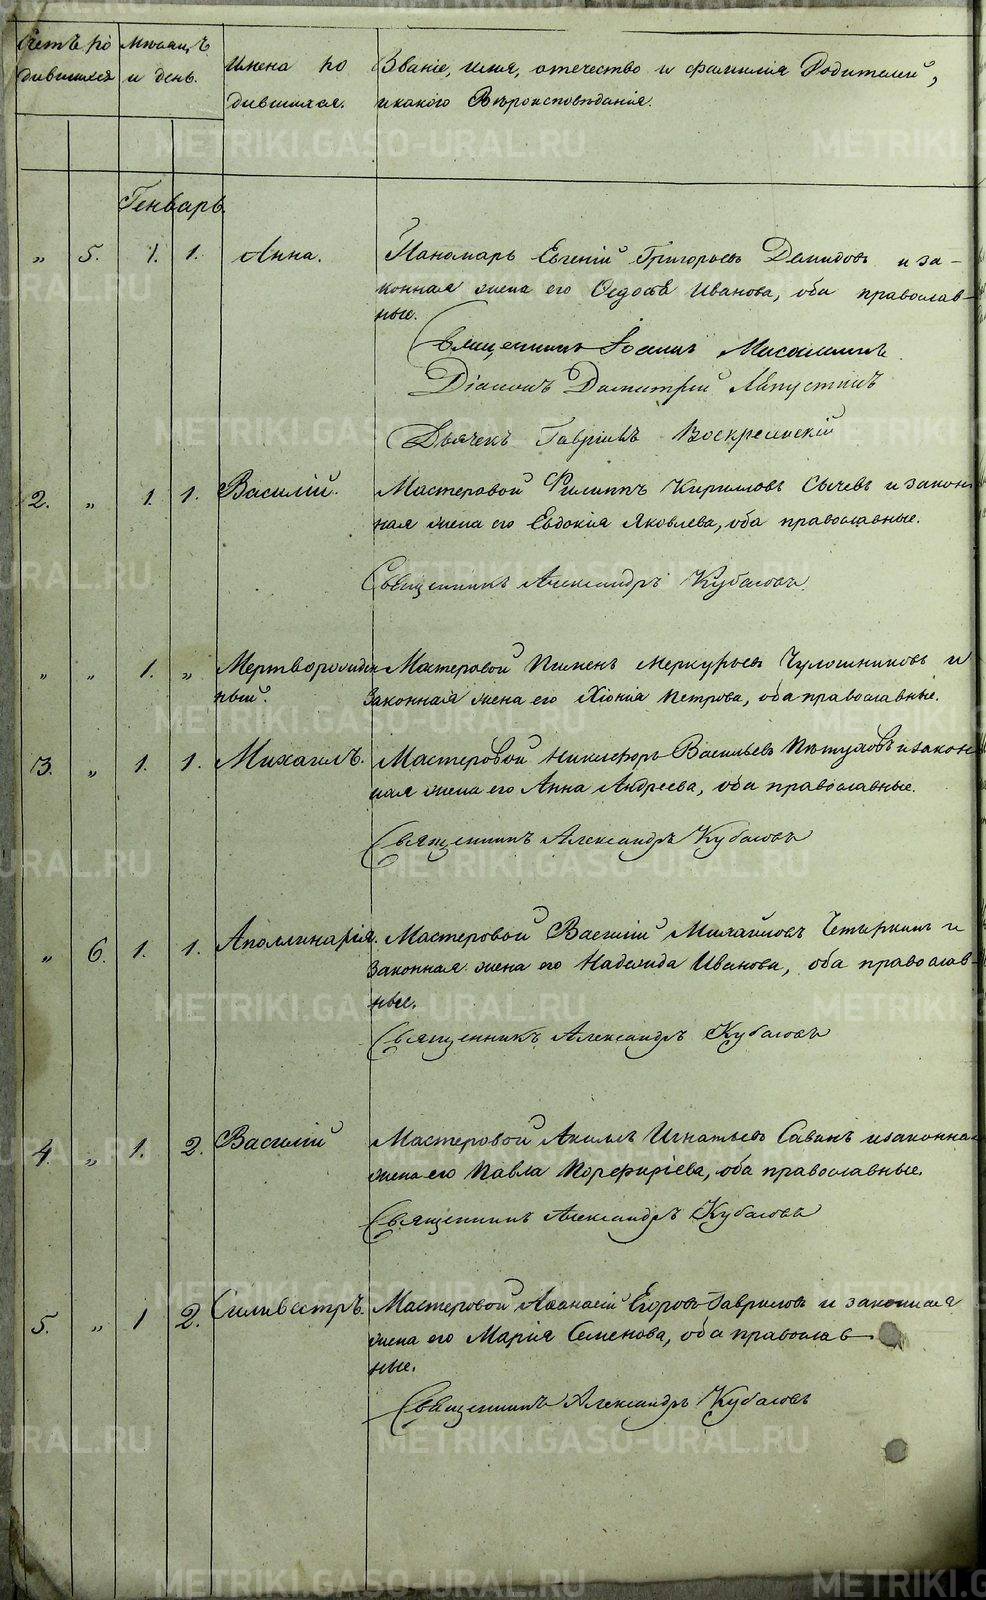 Счетъ ро
дившихся
Мѣсяцъ
и день.
Имена ро
дившихся.
Званіе, имя, отечество и фамилія Родителей,
и какого Вѣроисповѣданія.
Генварь.
„ 5. 1. 1. Анна. Пономарь Евгеній Григорьевъ Демидовъ и за-
конная жена его Ѳедосья Иванова, оба православ-
ные.
Священникъ Іоаннъ
Діаконъ Димитрій Августинъ
Дьячекъ Гавріилъ Воскресенскій
2. „ 1. 1. Василій. Мастеровой Филиппъ Кирилловъ Сычевъ и закон
ная жена его Евдокія Яковлева, оба православные.
Священникъ Александръ Кубасовъ
„ „ 1. „ Мертворожден Мастеровой Пименъ Меркурьевъ Чулошниковъ и
ный. Законная жена его Хіонія Петрова, оба православные.
3. „ 1. 1. Михаилъ. Мастеровой Никифоръ Васильевъ Пѣтуховъ и закон
ная жена его Анна Андреева, оба православные.
Священникъ Александръ Кубасовъ
„ 6. 1. 1. Аполлинарія. Мастеровой Василій Михайловъ Четыркинъ и
Законная жена его Надежда Иванова, оба православ-
ные.
Священникъ Александръ Кубасовъ
4. „ 1. 2. Василій Мастеровой Игнатьевъ и законная
жена его Павла Порфиріева, оба православные.
Священникъ Александръ Кубасовъ
5. „ 1 2. Силивестръ. Мастеровой Аѳанасій Егоровъ Гавриловъ и законная
жена его Марія Семенова, оба православ
ные.
Священникъ Александръ Кубасовъ
METRIKI.GASO-URAL.RU